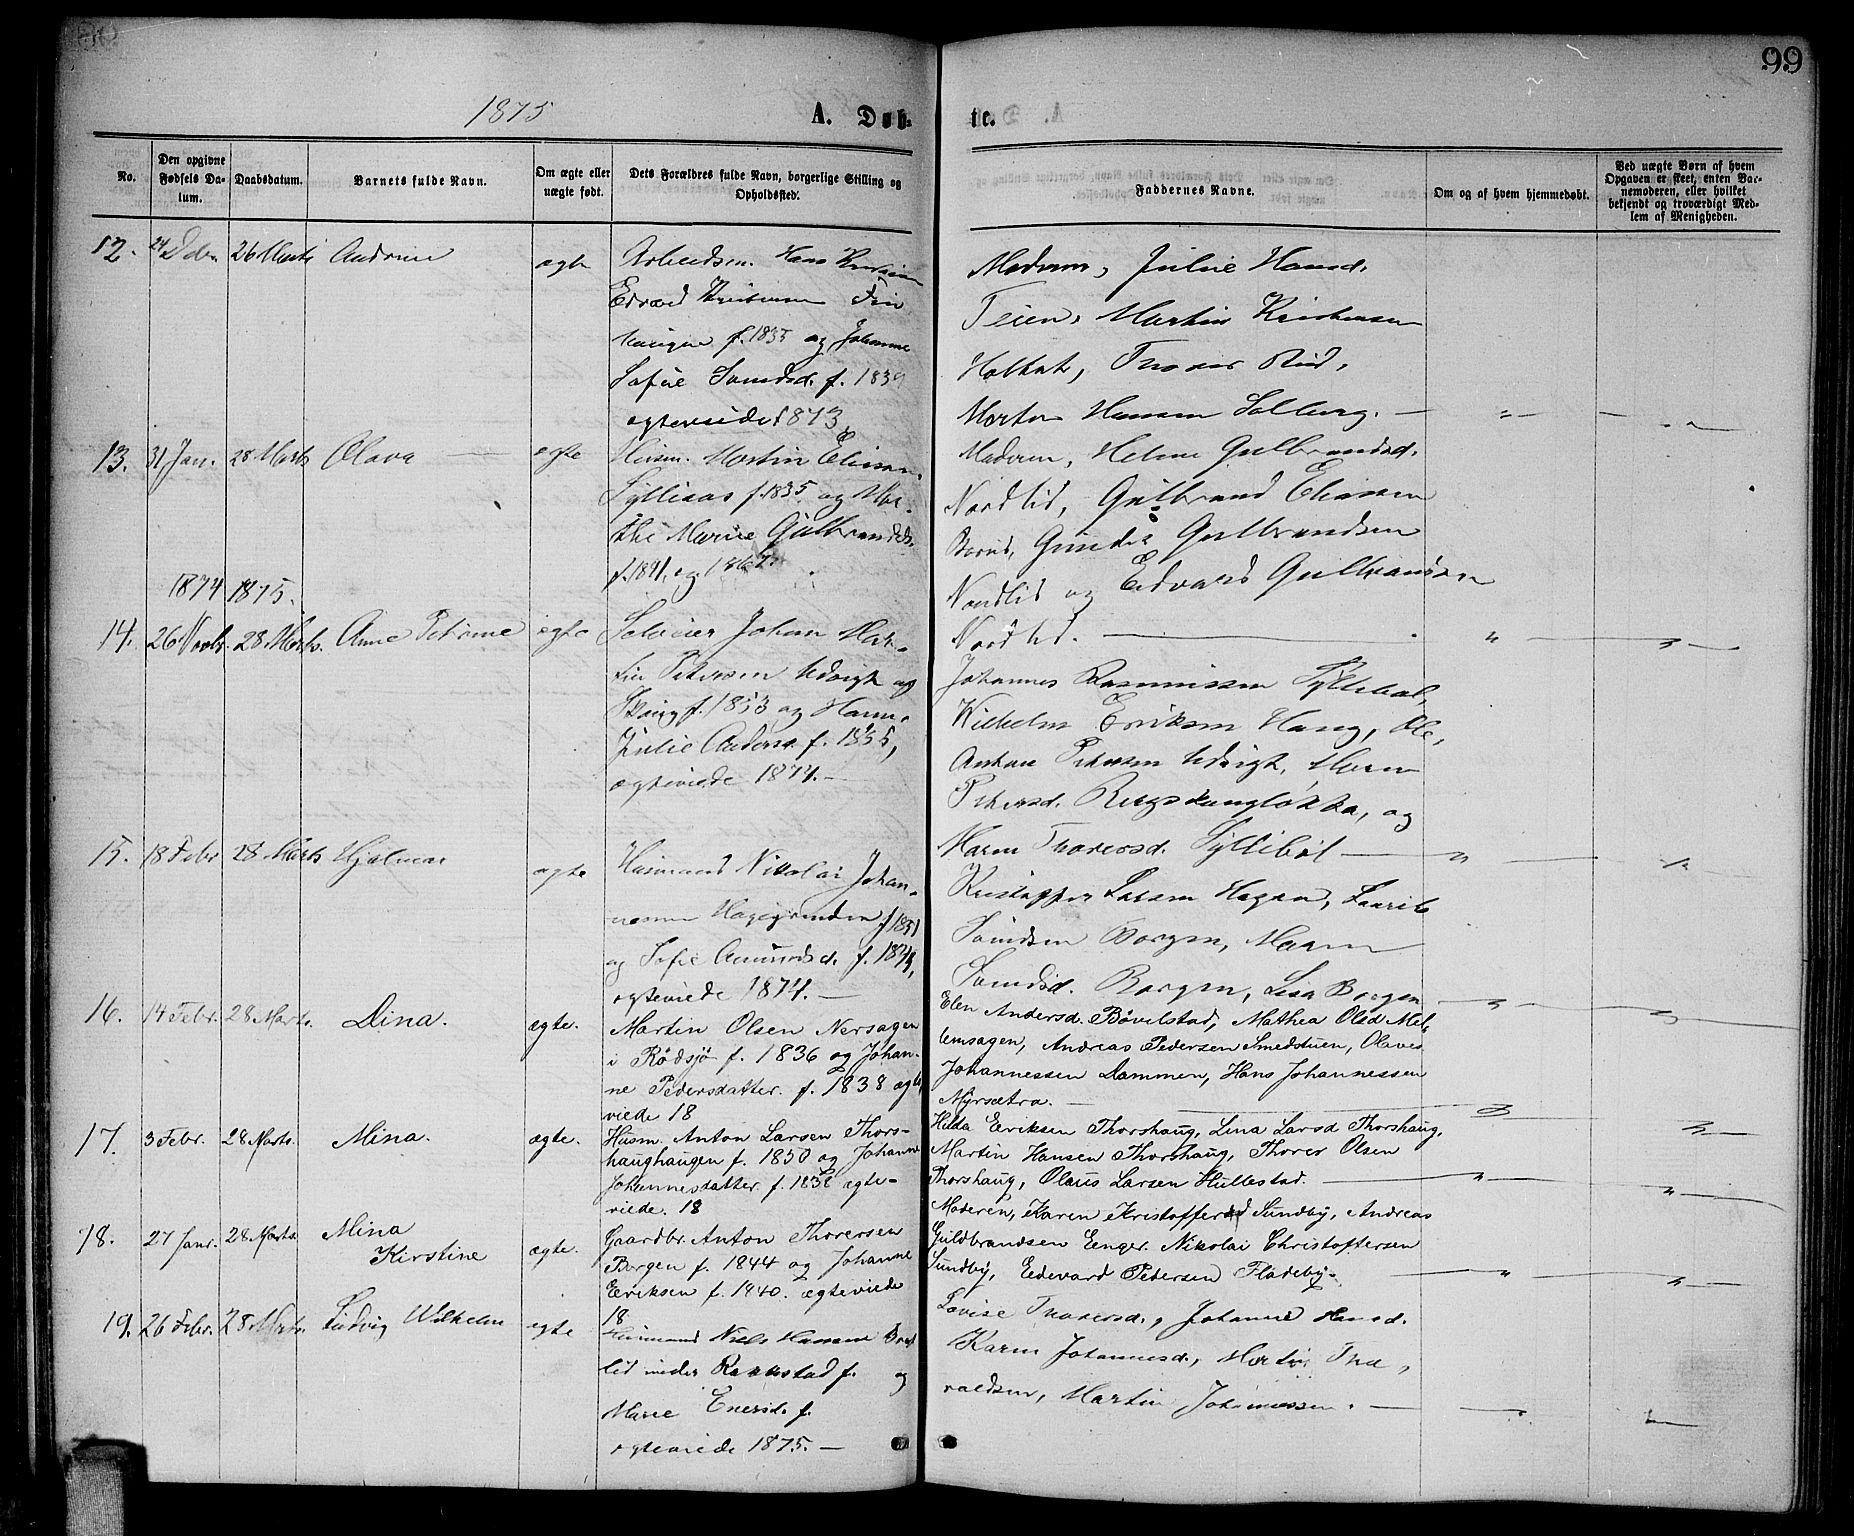 99
1875
A. Døb-
te.
No.
Den opgivne Fødsels Da-tum.
Daabsdatum.
Barnets fulde Navn.
Om ægte eller uægte født.
Dets Forældres fulde Navn, borgerlige Stilling og Opholdssted.
Faddernes Navne.
Om og af hvem hjemmedøbt.
Ved uægte Børn af hvem Opgaven er skeet, enten Barnemoderen, eller hvilket bekjendt og troværdigt Medlem af Menigheden.
12. 26 Marts ægte
Hans
Edvard
f. 1835 og Johanne
Sofie f. 1839
ægteviede 1873,
Moderen, Julie Hansd.
Teien, Martin Kristensen
Thorer Rud,
Hansen Solberg. —
13. 31 Jan. 28 Marts Olava — ægte
Husm. Martin Eliasen
f. 1835 og Mar-
the Marie Gulbrandsd.
f. 1841, og 1867.
Moderen, Helene Gulbrandsd.
Nordlid, Gulbrand Eliasen
Gulbrandsen
Nordlid og Edvard Gulbrandsen
Nordlid. —
1874 1875.
14. 26 Novbr. 28 Marts. Anne Petrine ægte
Selveier Johan Mar-
tin Petersen og
f. 1853 og Karen
Julie Anders. f. 1855,
ægteviede 1874. —
Johannes Rasmussen
Wilhelm Eriksen Haug, Ole
Anton Petersen Karen
Petersd. og
Karen Thorersd. —
15. 18 Febr 28 Marts Hjalmar ægte
Husmand Nikolai Johan-
nesen f. 1851
og Sofie Amundsd. f.
ægteviede 1874. —
Kristopher Larsen Hagen, Laurits
Borgen, Maren
Borgen, Lisa Borgen
16. 14 Febr. 28 Marts. Dina. ægte.
Martin Olsen Nersagen
i Rødsjø f. 1836 og Johan-
ne Pedersdatter. f. 1838 ægte
viede 18
Elen Andersd. Bøvelstad, Mathea Olsd Mel-
lemsagen, Andreas Pedersen Smedstuen, Olaves
Johannessen Dammen, Hans Johannessen
Myrsætra. —
17. 3 Febr. 28 Marts. Mina. ægte.
Husm. Anton Larsen Thors-
haughaugen f. 1850 og Johanne
Johannesdatter. f. ægte-
viede. 18
Hilda Eriksen Thorshaug, Lina Larsd Thorshaug,
Martin Hansen Thorshaug, Thorer Olsen
Thorshaug, Olaus Larsen Hullestad. —
18. 27 Janr. 28 Marts. Mina
Kirstine ægte.
Gaardbr. Anton Thorersen
Borgen f. 1844 og Johanne
Eriksen f. 1840. ægteviede
18
Moderen, Karen Kristoffersd Sundby, Andreas
Guldbrandsen Eenger. Nikolai Christoffersen
Sundby, Eedevard Pedersen Fladeby. —
19. 26 Febr. 28 Marts. Ludvig Wilhelm ægte
Husmand Niels Hansen
lid under f. og
Marie Enersd. f.
ægteviede 1875. —
Lovise Thorersd., Johanne Hansd.
Karen Johannesd., Martin Tho-
valdsen, Martin Johannessen. —